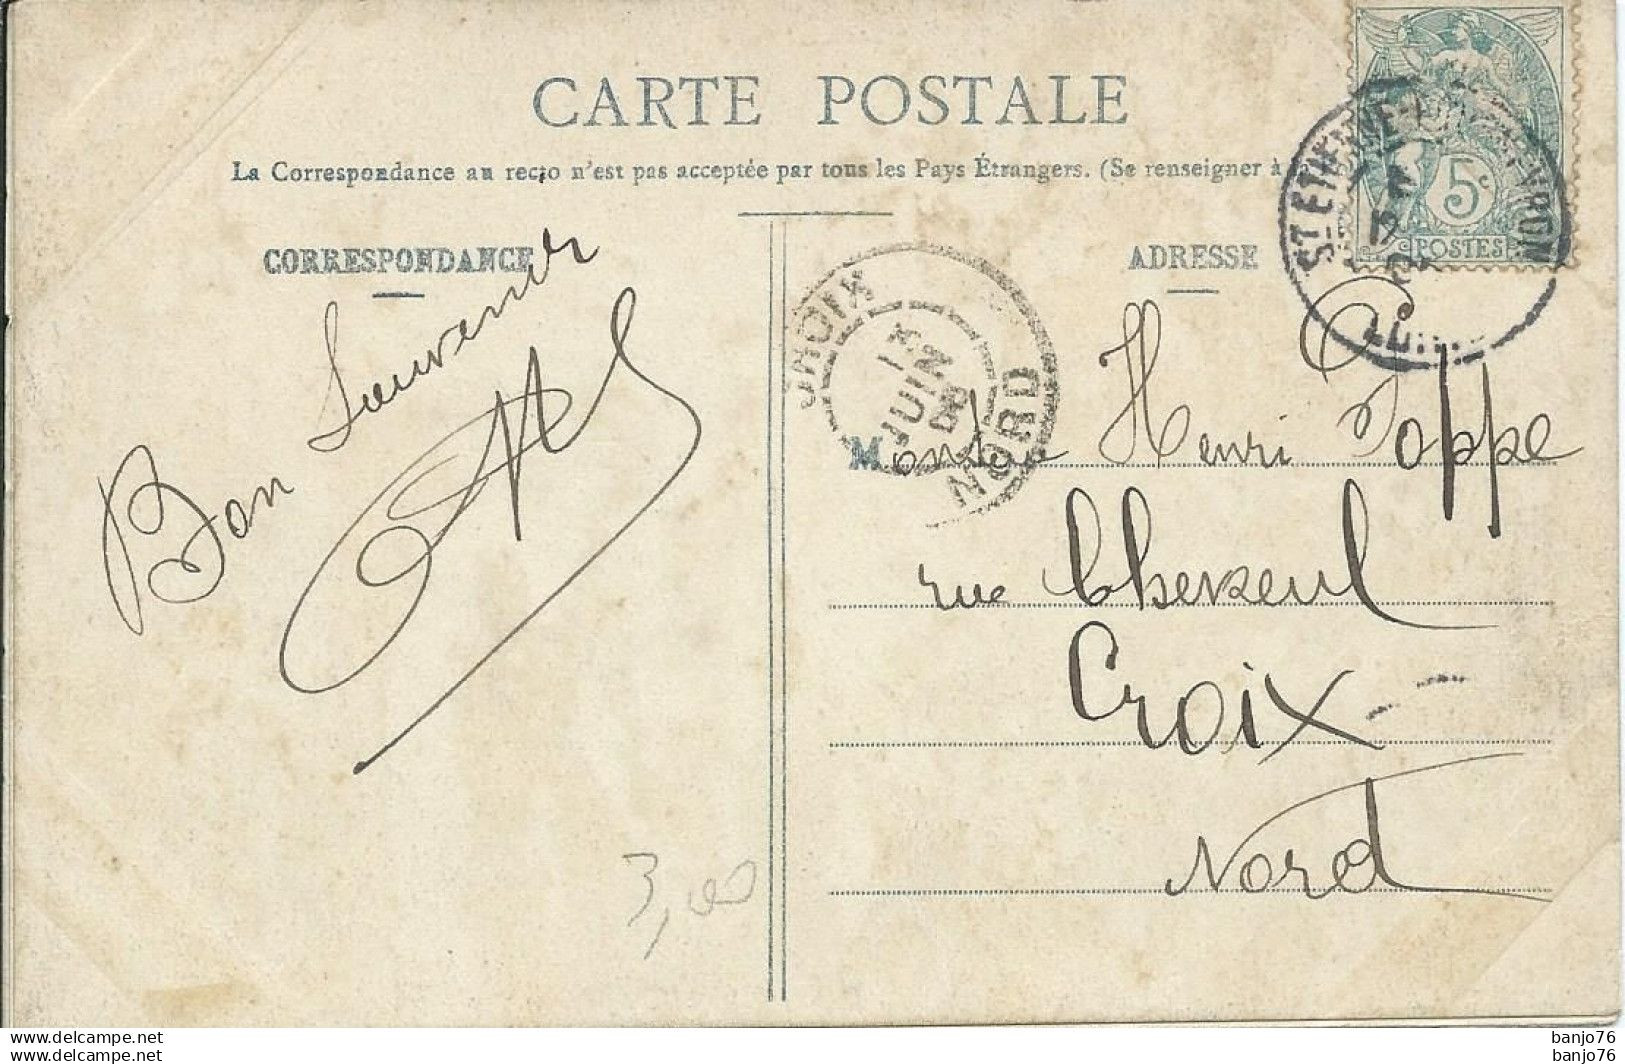 CARTE POSTALE
La Correspondance au recto n'est pas acceptée par tous les Pays Étrangers. (Se renseigner à
CORRESPONDANCE
ADRESSE
5c
POSTES
CROIX
13
JUIN
NORD
Bon Souvenir
Monsieur Henri Poppe
rue Chevreul
Croix
Nord
3,00
banjo76
banjo76